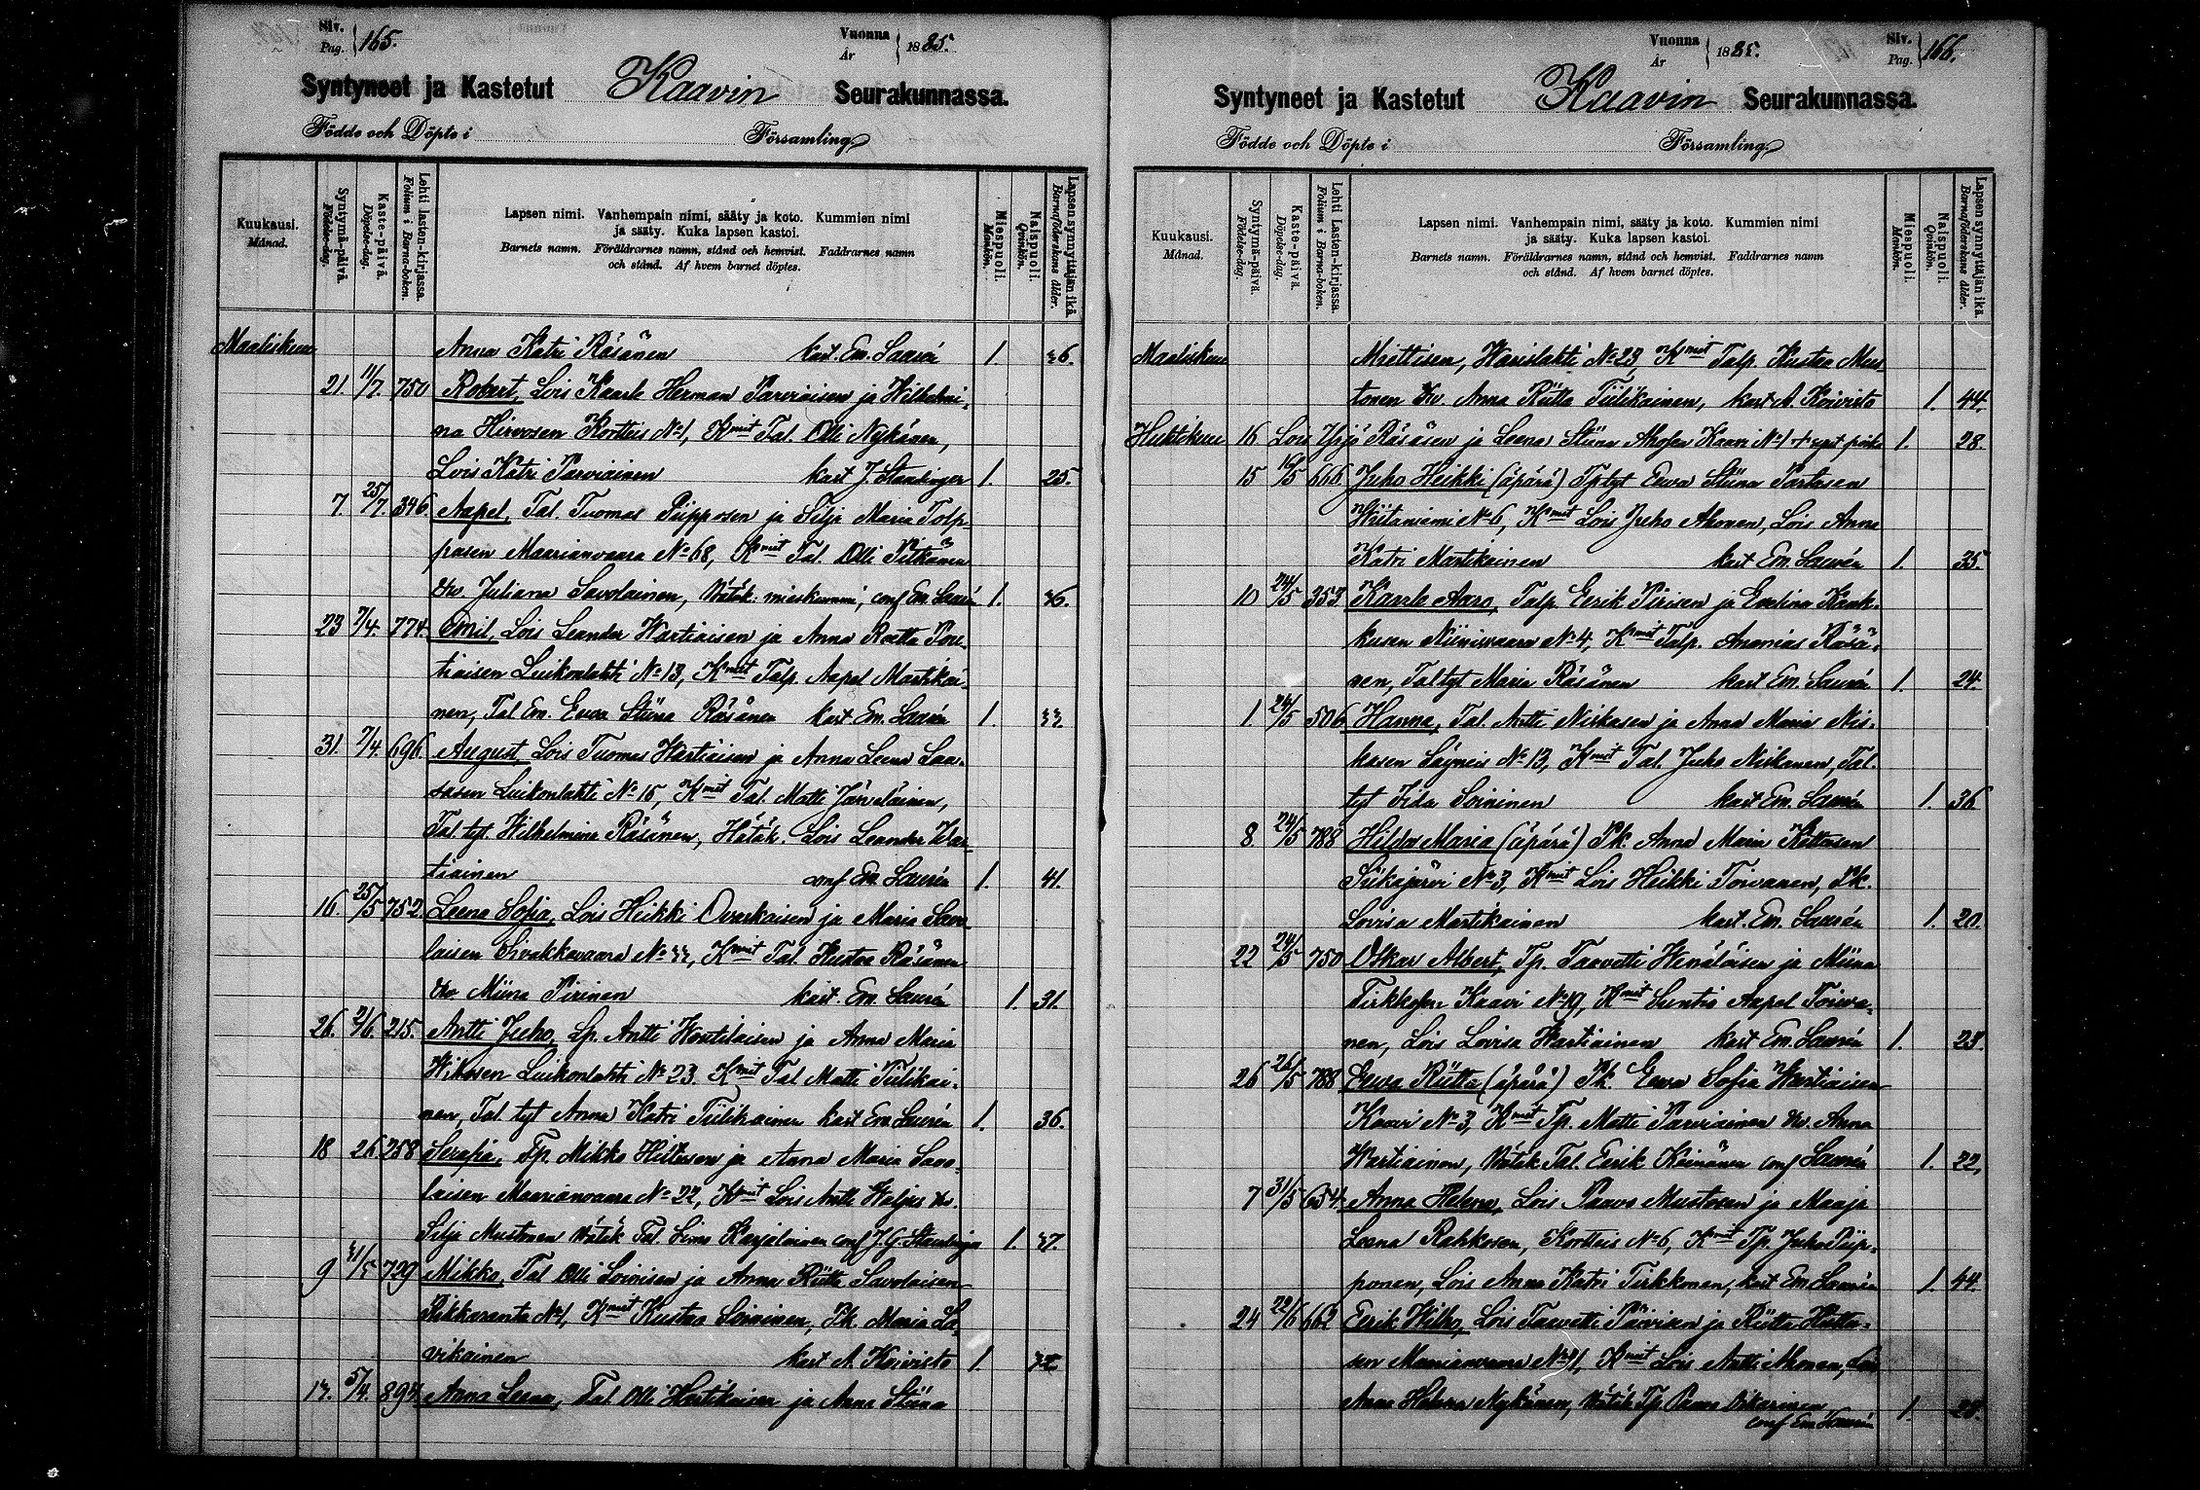 Siv. Pag. 165.
Vuonna År 1885.
Syntyneet ja Kastetut Kaavin Seurakunnassa.
Födde och Döpte i Församling.
Kuukausi. Månad.
Syntymä-päivä. Födelse-dag.
Kaste-päivä. Döpelse-dag.
Lehti lasten-kirjassa. Folium i Barna-boken.
Lapsen nimi. Vanhempain nimi, sääty ja koto. Kummien nimi
ja sääty. Kuka lapsen kastoi.
Barnets namn. Föräldrarnes namn, stånd och hemvist. Faddrarnes namn
och stånd. Af hvem barnet döptes.
Miespuoli. Mankön.
Naispuoli. Qvinkön.
Lapsen synnyttäjän ikä. Barnaföderskans ålder.
Maaliskuu Anna Katri Räsänen kast. Em. Laurén 1. 36.
21. 11/7. 750 Robert, Lois Kaarle Herman Parviaisen ja Wilhelmi-
na Hirvosen Kortteis No 1, Kmit Tal. Olli Nykänen,
Lois Katri Parviainen kast J. Staudinger 1. 25.
7. 25/7. 346 Aapel, Tal. Tuomas Piipposen ja Silja Maria Tolp-
pasen Maarianvaara No 68, Kmit Tal. Olli Pitkänen
vw. Juliana Savolainen, Hätäk: conf Em Laurén 1. 36.
23 7/4. 774. Emil, Lois Leander Wartiaisen ja Anna Reetta Pou-
tiaisen Luikonlahti No 13, Kmit Talp Aapel Martikai-
nen, Tal Em. Eeva Stiina Räsänen kast Em. Laurén 1. 33.
31. 7/4. 696. August, Lois Tuomas Wartiaisen ja Anna Leena Laa-
sasen Luikonlahti No 15, Kmit Tal. Matti Järveläinen,
Tal. tyt. Wilhelmina Räsänen, Hätäk. Lois Leander War-
tiainen conf Em. Laurén 1. 41.
16. 25/5 752. Leena Sofia, Lois Heikki Ovaskaisen ja Maria Savo-
laisen Sivakkavaara No 33, Kmit Tal. Kustaa Räsänen
vw Miina Pirinen kast. Em. Laurén 1. 31.
26. 21/6. 215. Antti Juho, Lp. Antti Houtilaisen ja Anna Maria
Luikonlahti No 23. Kmit Tal Matti Tiilikai-
nen, Tal. tyt Anna Katri Tiilikainen kast Em Laurén 1. 36.
18 26 258 Serafia, Tp. Mikko ja Anna Maria Savo-
laisen Maarianvaara No 22, Kmit Lois Antti vw.
Silja Mustonen Hätäk Tal. Simo Karjalainen conf J. G. Staudinger 1. 37.
9 31/5 729 Mikko, Tal Olli Soinisen ja Anna Riitta Savolaisen
Rikkaranta No 1, Kmit Kustaa Soininen, Pk Maria La-
vikainen kast A. Koivisto 1.
13. 5/4. Anna Leena, Tal Olli ja Anna Stiina
Vuonna År 1885.
Siv. Pag. 166.
Syntyneet ja Kastetut Kaavin Seurakunnassa.
Födde och Döpte i Församling.
Kuukausi. Månad.
Syntymä-päivä. Födelse-dag.
Kaste-päivä. Döpelse-dag.
Lehti lasten-kirjassa. Folium i Barna-boken.
Lapsen nimi. Vanhempain nimi, sääty ja koto. Kummien nimi
ja sääty. Kuka lapsen kastoi.
Barnets namn. Föräldrarnes namn, stånd och hemvist. Faddrarnes namn
och stånd. Af hvem barnet döptes.
Miespuoli. Mankön.
Naispuoli. Qvinkön.
Lapsen synnyttäjän ikä. Barnaföderskans ålder.
Maaliskuu No 23, Kmit Talp. Kustaa Mus-
tonen vw. Anna Riitta Tiilikainen, kast A. Koivisto 1. 44.
Huhtikuu 16 Lois Yrjö Räsäsen ja Leena Stiina Ahosen Kaavi No 1 1. 28.
15 10/5 666. Juho Heikki (äpärä) Tptyt Eeva Stiina Partasen
Niitaniemi No 6, Kmit Lois Juho Ahonen, Lois Anna
Katri Martikainen kast Em. Laurén 1. 35.
10 24/5 353 Kaarle Aaro, Talp. Eerik Pirisen ja Evelina Kauk-
kusen Niinivaara No 4, Kmit Talp. Ananias Räsä-
nen, Tal tyt Maria Räsänen kast Em. Laurén 1. 24.
1 24/5 506 Hanna, Tal. Antti Niskasen ja Anna Maria Nis-
kasen Säyneis No 13, Kmit Tal. Juho Niskanen, Tal.
tyt Iida Soininen kast Em. Laurén 1. 36
8 24/5 788 Hilda Maria (äpärä) Pk. Anna Maria
Siikajärvi No 3, Kmit Lois Heikki Toivanen, Pk.
Lovisa Martikainen kast. Em. Laurén 1. 20.
22 24/5 750 Oskar Albert, Tp. Taavetti Heinäläisen ja Miina
Tirkkosen Kaavi No 19, Kmit Suntio Aapel Toiva-
nen, Lois Lovisa Wartiainen kast Em. Laurén 1. 23.
26 26/5 788 Eeva Riitta (äpärä) Pk. Eeva Sofia Wartiaisen
Kaavi No 3, Kmit Tp. Matti Parviainen vw. Anna
Wartiainen, Hätäk Tal. Eerik Keinänen conf Laurén 1. 22,
7 31/5 654. Anna Helena, Lois Paavo Mustosen ja Maaja
Leena Rahkosen, Kortteis No 6, Kmit Tp. Juho Piip-
ponen, Lois Anna Katri Tirkkonen, kast Em Laurén 1. 44.
24 22/6 662 Eerik Wilho, Lois Taavetti ja Riitta Hutta-
sen Marianvaara Kmit Lois Antti Ahonen, Lois
Anna Helena Nykänen, Hätäk Tp Paavo
conf Em Laurén 1. 28.